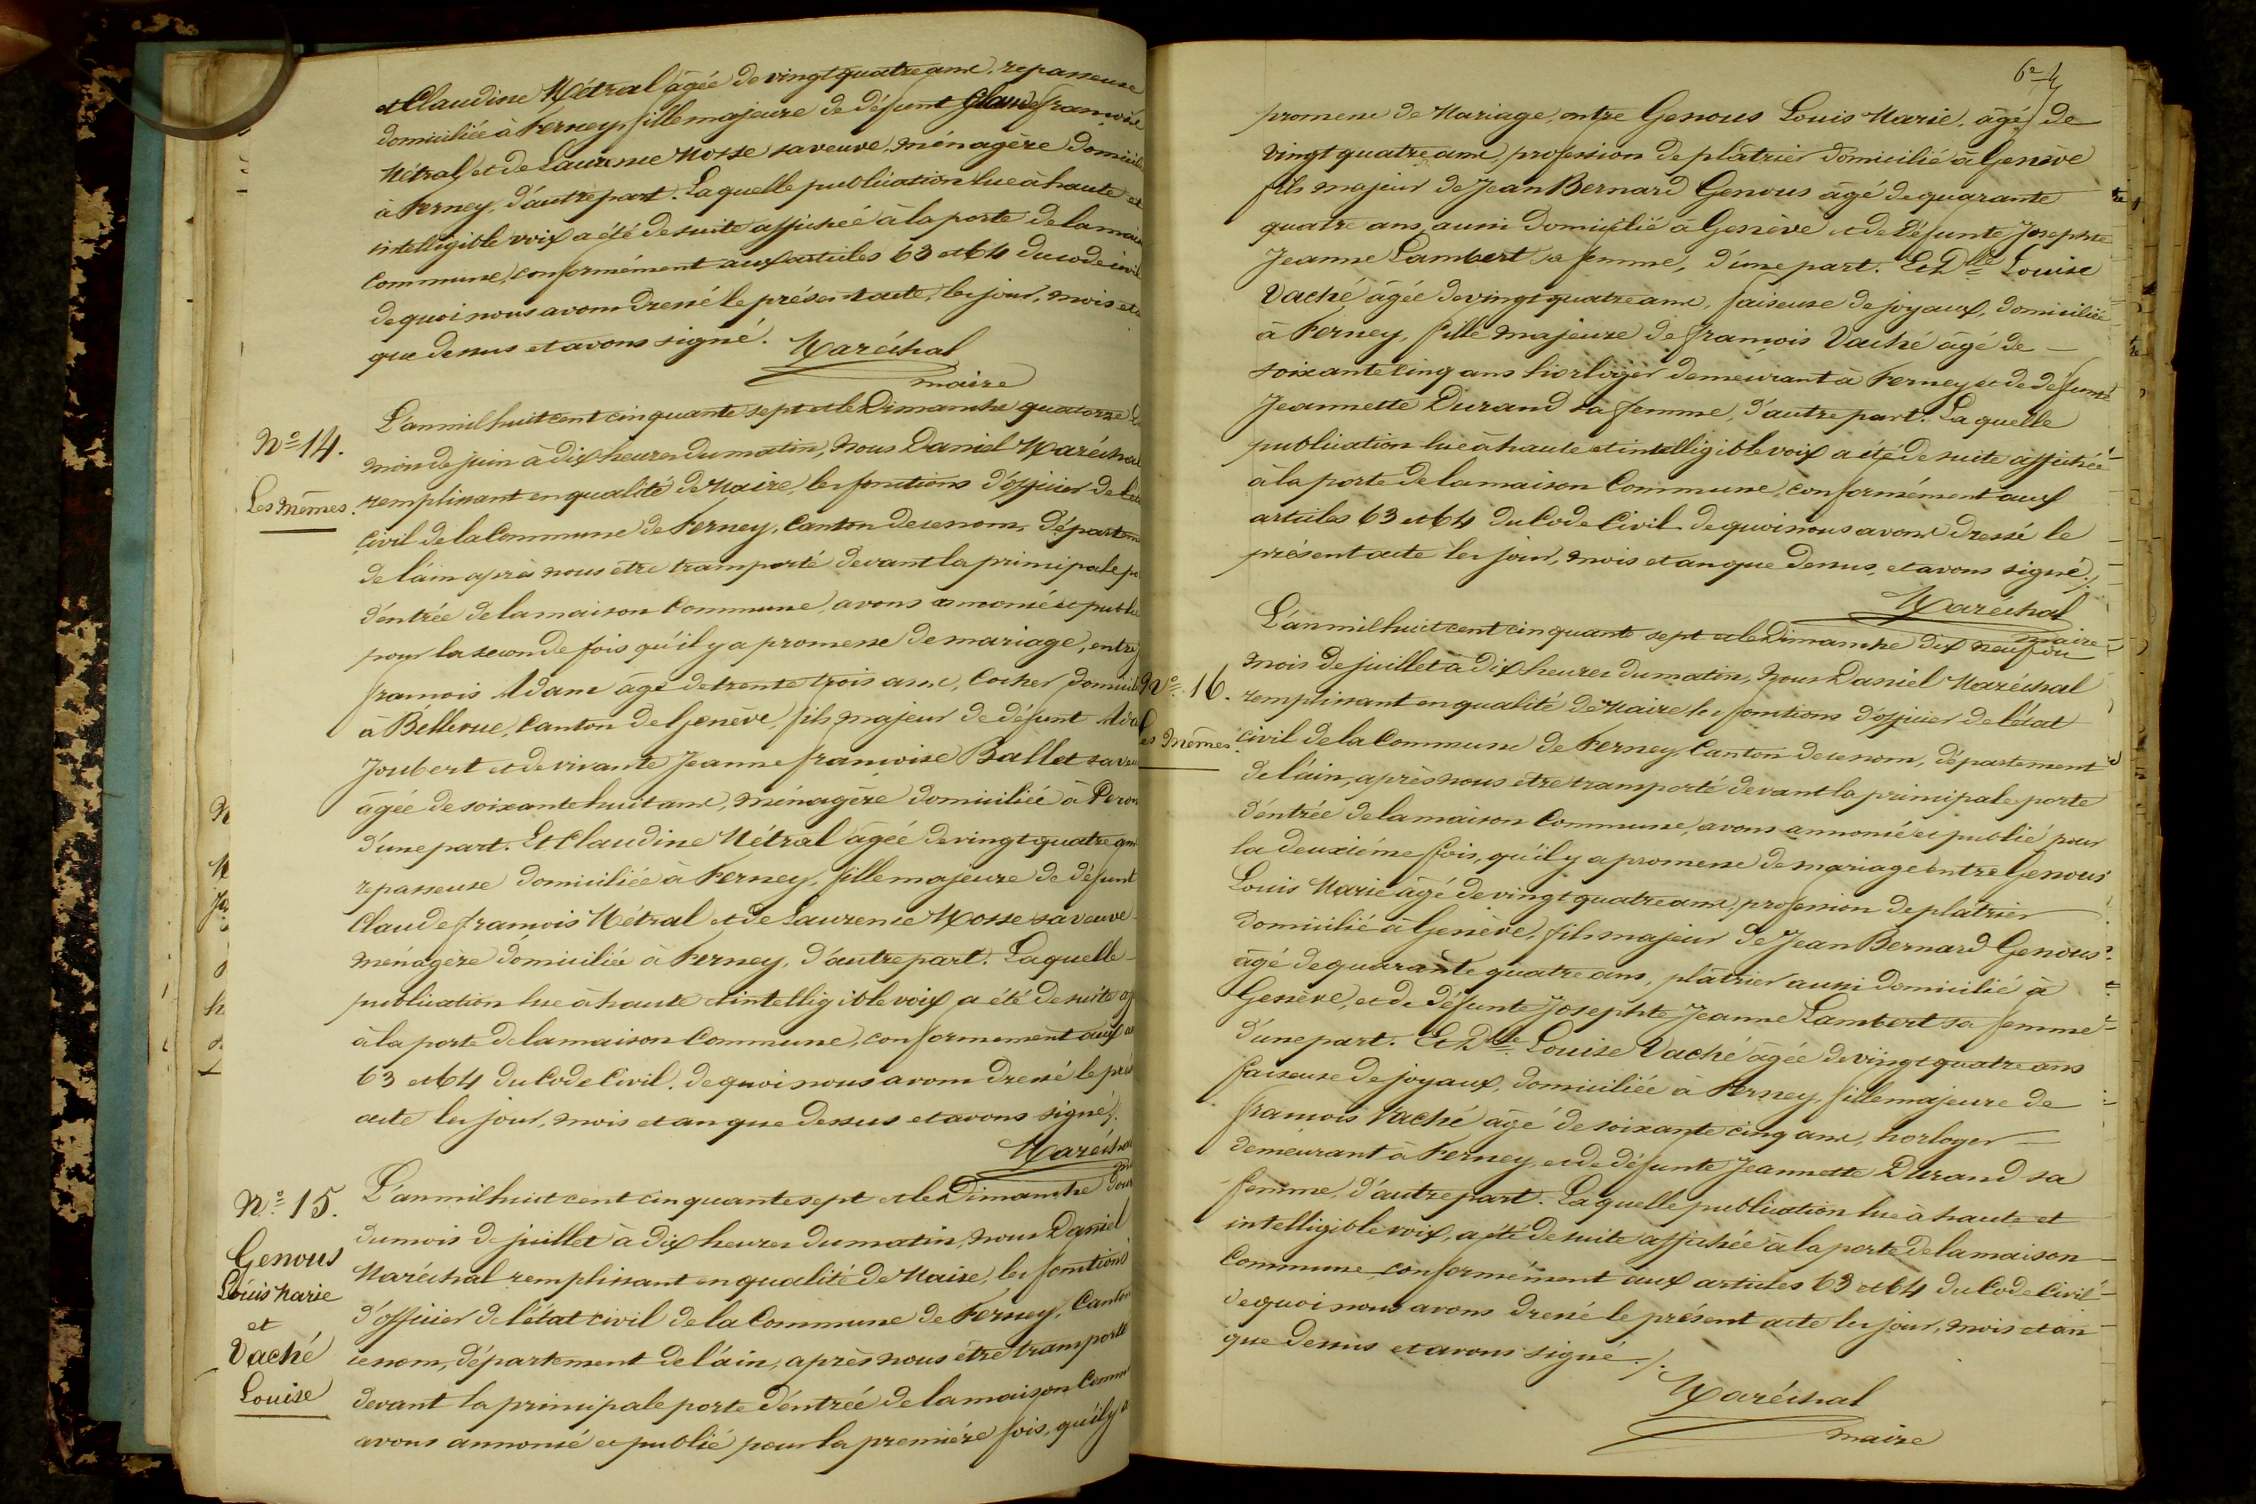 et Claudine Métral âgée de vingt quatre ans, repasseuse
domiciliée à Ferney, fille majeure de défunt Claude françois
Métral et de Laurence Mosse sa veuve, ménagère domicili
à Ferney, d'autre part. Laquelle publication lue à haute et
intelligible voix a été de suite affichée à la porte de la mai
commune, conformément aux articles 63 et 64 du code civil
de quoi nous avons dressé le présent acte, les jour, mois et
que dessus et avons signé.
Maréchal
maire
N.º 14.
Les Mêmes.
L'an mil huit cent cinquante sept et le Dimanche quatorze
mois de juin à dix heures du matin, Nous Daniel Maréchal
remplissant en qualité de Maire, les fonctions d'officier de l'é
civil de la Commune de Ferney, Canton de ce nom, départem
de l'ain après nous être transporté devant la principale po
d'entrée de la maison Commune, avons annoncé et publié
pour la seconde fois qu'il y a promesse de mariage, entre
françois Adam âgé de trente trois ans, Cocher domicili
à Bellevue, Canton de Genève, fils majeur de défunt Ada
Joubert et de vivante Jeanne françoise Ballet sa veu
âgée de soixante huit ans, ménagère domiciliée à Peron
d'une part. Et Claudine Métral âgée de vingt quatre ans
repasseuse domiciliée à Ferney, fille majeure de défunt
Claude françois Métral et de Laurence Mosse sa veuve
ménagère domiciliée à Ferney, d'autre part. Laquelle
publication lue à haute et intelligible voix a été de suite af
à la porte de la maison Commune, conformement aux a
63 et 64 du Code Civil. de quoi nous avons dressé le prés
acte les jour, mois et an que dessus et avons signé.
Maréchal
N.º 15.
Genous
Louis Marie
et
Vaché
Louise
L'an mil huit cent cinquante sept et le Dimanche douz
du mois de juillet à dix heures du matin, nous Daniel
Maréchal remplissant en qualité de Maire, les fonctions
d'officier de l'état civil de la Commune de Ferney, Canton
ce nom, département de l'ain, après nous être transporté
devant la principale porte d'entrée de la maison Commu
avons annoncé et publié pour la première fois, qu'il y a
promesse de Mariage, entre Genous Louis Marie, âgé de
vingt quatre ans, profession de plâtrier domicilié à Genève
fils majeur de Jean Bernard Genous âgé de quarante
quatre ans, aussi domicilié à Genève et de défunte Josephte
Jeanne Lambert sa femme, d'une part. Et Dlle Louise
Vaché âgée de vingt quatre ans, faiseuse de joyaux, domiciliée
à Ferney, fille majeure de françois Vaché âgé de
soixante cinq ans horloger demeurant à Ferney et de défunte
Jeannette Durand sa femme, d'autre part. Laquelle
publication lue à haute et intelligible voix a été de suite affichée
à la porte de la maison Commune, conformément aux
articles 63 et 64 du Code Civil. de quoi nous avons dressé le
présent acte les jour, mois et an que dessus, et avons signé./.
Maréchal
maire
N.º 16.
es Mêmes.
L'an mil huit cent cinquante sept et le Dimanche dix neuf du
mois de juillet à dix heures du matin, Nous Daniel Maréchal
remplissant en qualité de Maire les fonctions d'officier de l'état
civil de la Commune de Ferney, Canton de ce nom, département
de l'ain, après nous être transporté devant la principale porte
d'entrée de la maison Commune, avons annoncé et publié pour
la deuxième fois, qu'il y a promesse de mariage entre Genous
Louis Marie âgé de vingt quatre ans, profession de plâtrier
domicilié à Genève, fils majeur de Jean Bernard Genous
âgé de quarante quatre ans, plâtrier aussi domicilié à
Genève, et de défunte Josephte Jeanne Lambert sa femme
d'une part. Et Dlle Louise Vaché âgée de vingt quatre ans
faiseuse de joyaux, domiciliée à Ferney, fille majeure de
francois Vaché âgé de soixante cinq ans, horloger
demeurant à Ferney, et de défunte Jeannette Durand sa
femme, d'autre part. Laquelle publication lue à haute et
intelligible voix, a été de suite affichée à la porte de la maison
Commune conformément aux articles 63 et 64 du Code Civil
de quoi nous avons dressé le présent acte les jour, mois et an
que dessus et avons signé./.
Maréchal
maire